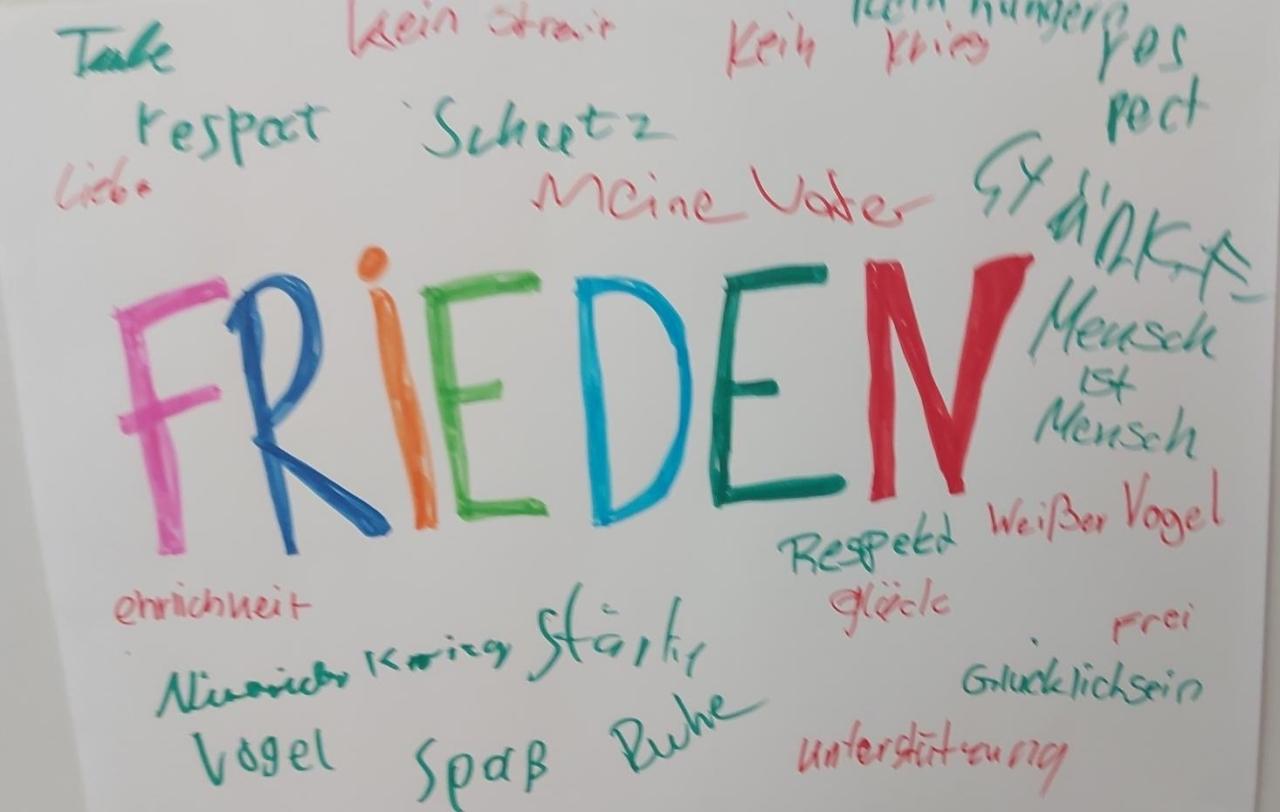 kein hunger
Taube
kein streit
Kein Krieg
res
pect
respect
Schutz
Liebe
Meine Vater
FRiEDEN
Mensch
ist
Mensch
Weißer Vogel
Respekt
ehrlichkeit
glück
Frei
Krieg
Glücklichsein
Vogel
Spaß
Ruhe
unterstützung